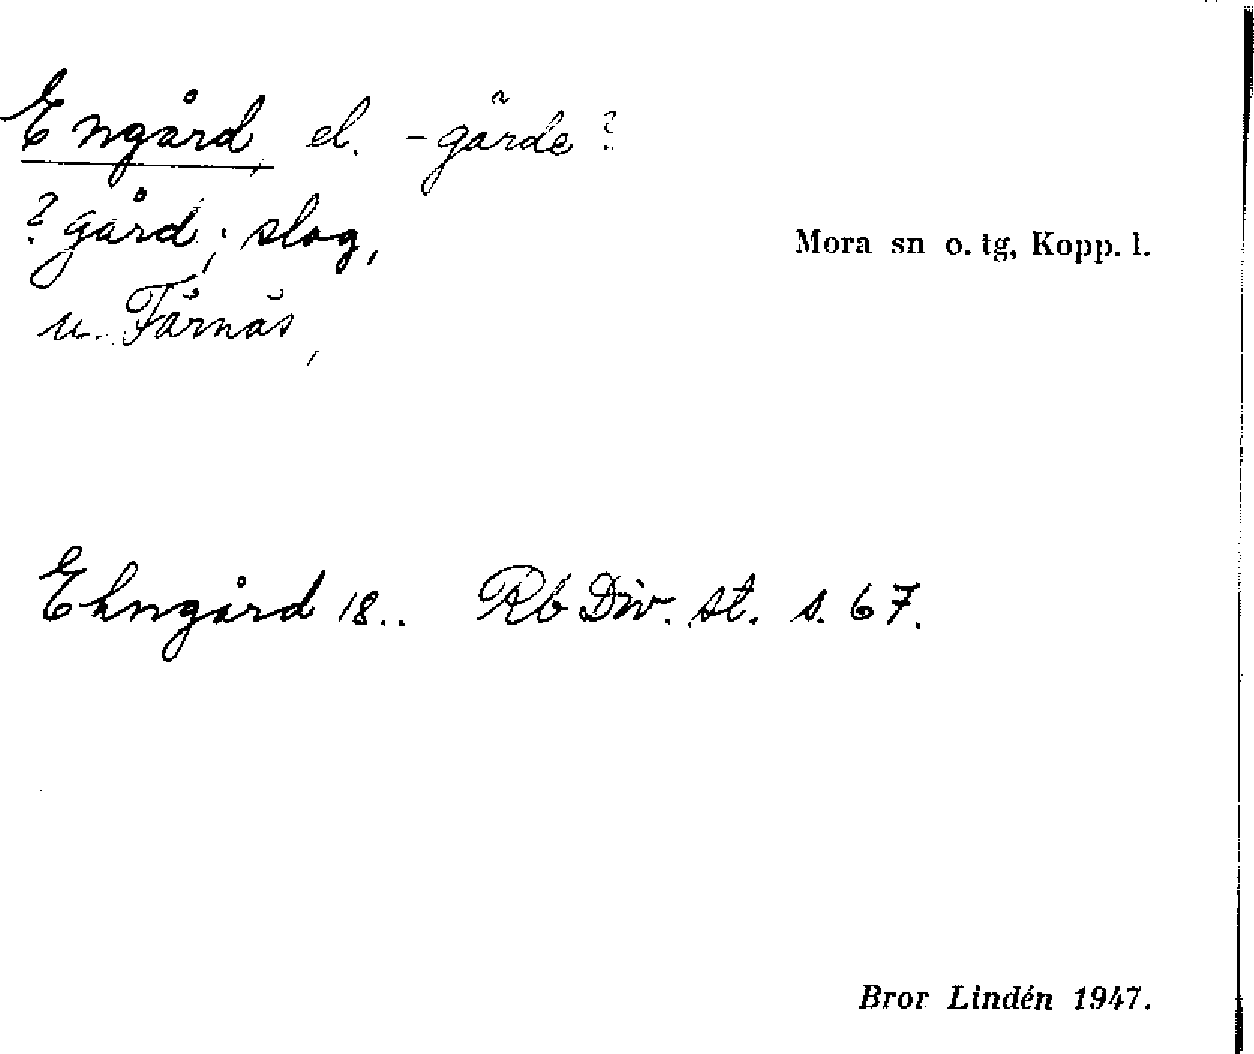 Engård, el. -gärde?
? gård; slog,
Mora sn o. tg, Kopp. l.
u. Färnäs,
Ehngård 18.. Rb Div. st. s. 67.
Bror Lindén 1947.